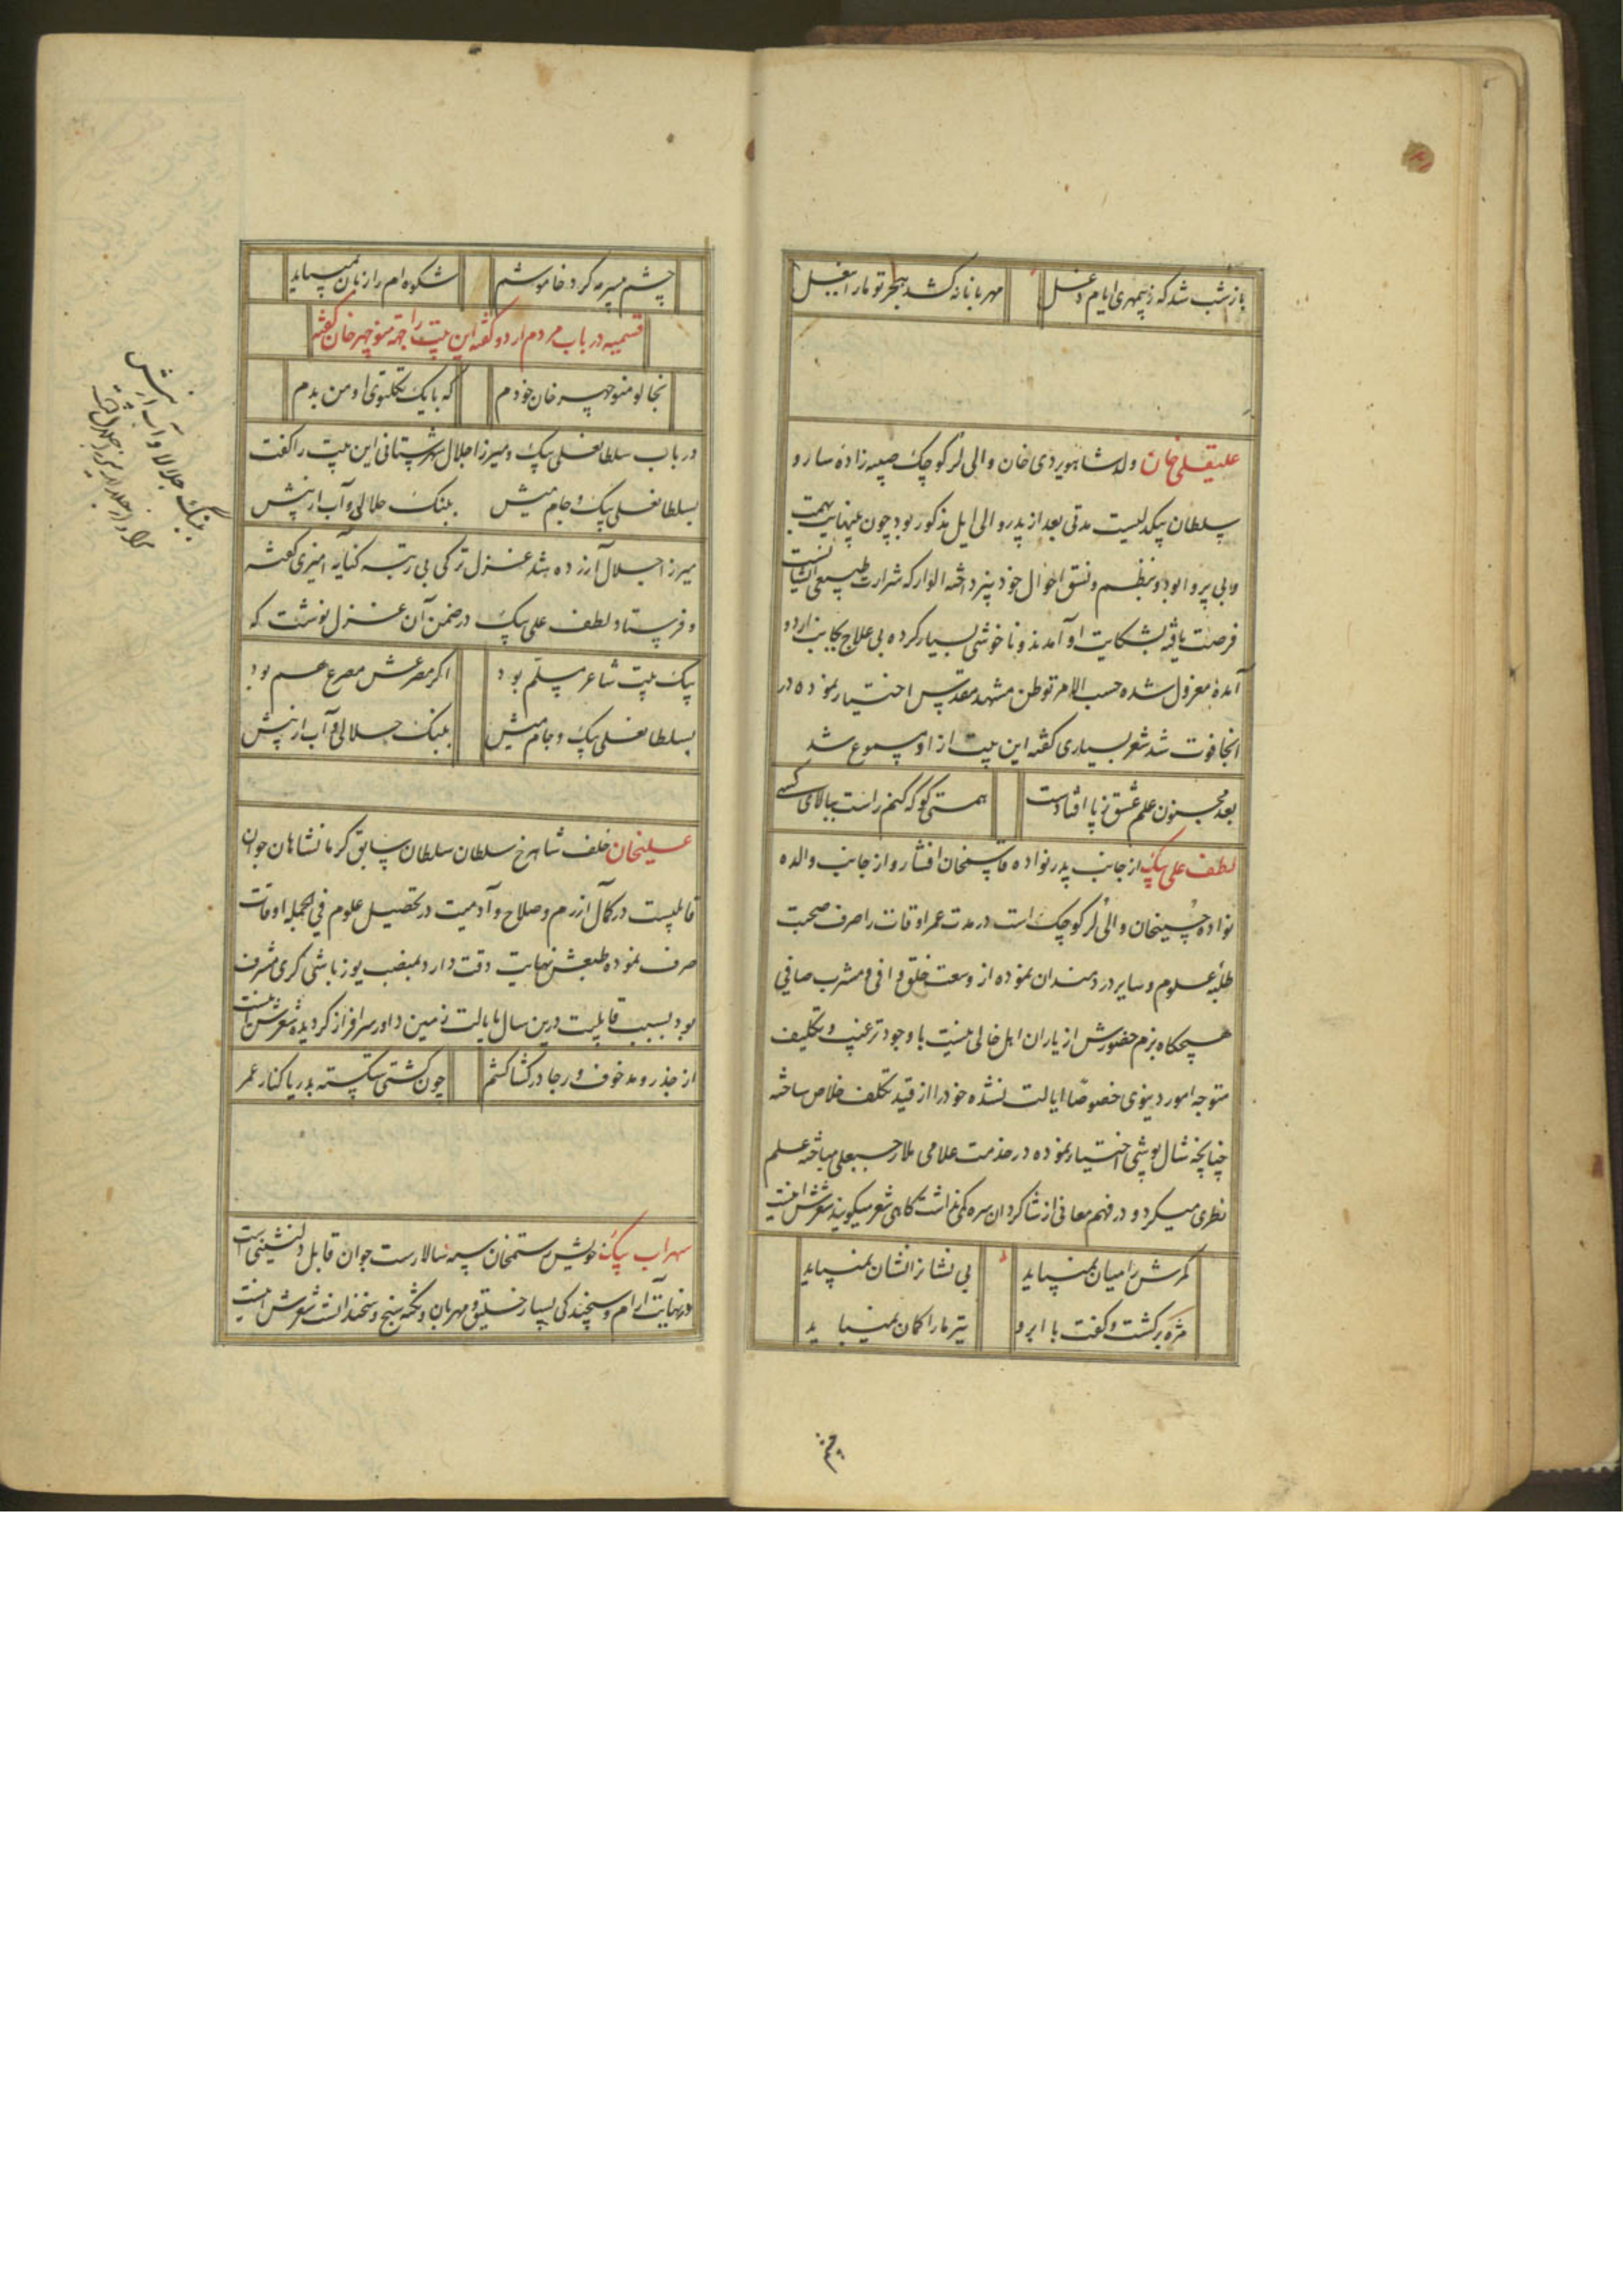 باز شب شد که ز بیمهری ایام دغل مهربانانه کشد هجر تو ما را ببغل
علیقلی خان ولد شاهویردی خان والی لر کوچک صبیه زاده سارو
سلطان بیکدلیست مدتی بعد از پدر والی ایل مذکور بود چون بینهایت بیهمت
و بی پروا بود و بنظم و نسق احوال خود نپرداخته الوار که شرارت طبیعی ایشانست
فرصت یافته بشکایت او آمدند و ناخوشی بسیار کرده بی علاج بجانب اردو
آمده معزول شده حسب الامر توطن مشهد مقدس اختیار نموده در
انجا فوت شد شعر بسیاری گفته این بیت از او مسموع شد
بعد مجنون علم عشق ز پا افتادست همتی کو که کنم راست ببالای کسی
لطف علی بیک از جانب پدر نواده قاسمخان افشار و از جانب والده
نواده حسینخان والی لر کوچک است در مدت عمر اوقات را صرف صحبت
طلبه علوم و سایر دردمندان نموده از وسعت خلق وافی و مشرب صافی
هیچگاه بزم حضورش از یاران اهل خالی نیست با وجود ترغیب و تکلیف
متوجه امور دنیوی خصوصا ایالت نشده خود را از قید تکلف خلاص ساخته
چنانچه شال پوشی اختیار نموده در خدمت علامی ملا رجبعلی مباحثه علم
نظری میکرد و در فهم معانی از شاکردان سره کمی نداشت گاهی شعر میگوید شعرش اینست
کمرش را میان نمیباید بی نشانرا نشان نمیباید
مژه برگشت و گفت با ابرو تیر ما را کمان نمیباید
چشم سرمه کرد خاموشم شکوه ام را زبان نمیباید
قسمیه در باب مردم اردو گفته این بیت را جهة منوچهر خان گفته
بخالو منوچهر خان خودم که با یک تکلتوی او من بدم
در باب سلطانعلی بیک و میرزا جلال شهرستانی این بیت را گفت
بسلطانعلی بیک و جام میش ببنک جلالی و آب ارنپش
میرزا جلال آزرده شد غزل ترکی بی رتبه کنایه آمیزی گفته
و فرستاد لطف علی بیک در ضمن آن غزل نوشت که
بیک بیت شاعر مسلم بود اگر مصرعش مصرع عم بود
بسلطانعلی بیک و جام میش ببنک جلالی و آب ارنپش
علیخان خلف شاهرخ سلطان سلطان سابق کرمانشاهان جوان
قابلیست در کمال آزرم و صلاح و آدمیت در تحصیل علوم فی الجمله اوقات
صرف نموده طبعش نهایت دقت دارد بمنصب یوزباشی گری مشرف
بود بسبب قابلیت درین سال بایالت زمین داور سرافراز گردیده شعرش اینست
از جذر و مد خوف و رجا در کشاکشم چون کشتی شکسته بدریا کنار عمر
سهراب بیک خویش رستمخان سپه سالارست جوان قابل دلنشینی است
در نهایت آرام و سنجیدکی بسیار خلیق و مهربان و نکته سنج و سخندانست شعرش اینست
ببنک جلالا و آب ارنپش